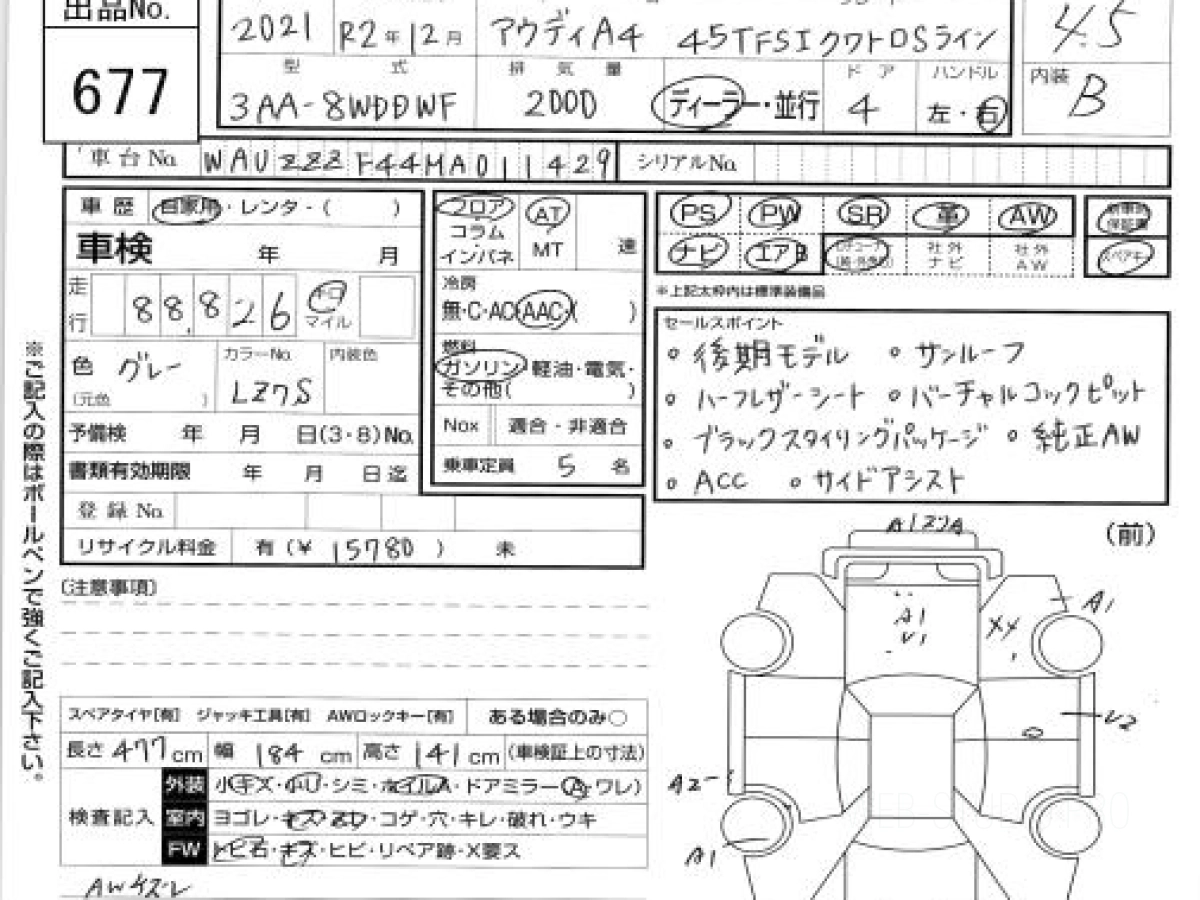 出品No.
677
2021 R2年12月 アウディA4 45TFSIクワトロSライン
4.5
型 式 排 気 量 ド ア ハンドル
3AA-8WDDWF 2000 ディーラー・並行 4 左・右
内装 B
車台No. WAUZZZF44MA011429 シリアルNo.
車 歴 自家用・レンタ・( )
車検 年 月
走行 88,826 キロ マイル
色 グレー カラーNo. LZ7S 内装色
(元色 )
予備検 年 月 日(3・8)No.
書類有効期限 年 月 日迄
登 録 No.
リサイクル料金 有 (¥ 15780 ) 未
フロア コラム インパネ
AT MT 速
冷房
無・C・AC・AAC( )
燃料
ガソリン・軽油・電気・
その他( )
Nox 適合・非適合
乗車定員 5 名
PS PW SR 革 AW
ナビ エアB 社外ナビ 社外AW
保証書
スペアキー
※上記太枠内は標準装備品
セールスポイント
○ 後期モデル ○ サンルーフ
○ ハーフレザーシート ○ バーチャルコックピット
○ ブラックスタイリングパッケージ ○ 純正AW
○ ACC ○ サイドアシスト
※ご記入の際はボールペンで強くご記入下さい。
(注意事項)
スペアタイヤ[有] ジャッキ工具[有] AWロックキー[有] ある場合のみ○
長さ 477 cm 幅 184 cm 高さ 141 cm (車検証上の寸法)
検査記入
外装 小(キズ・小U・シミ・ホイルA・ドアミラー(A・ワレ)
室内 ヨゴレ・キズ・コゲ・穴・キレ・破れ・ウキ
FW トビ石・キズ・ヒビ・リペア跡・X要ス
AWキズレ
(前)
A1
A1
U1
XX
A1
U2
A2
A1